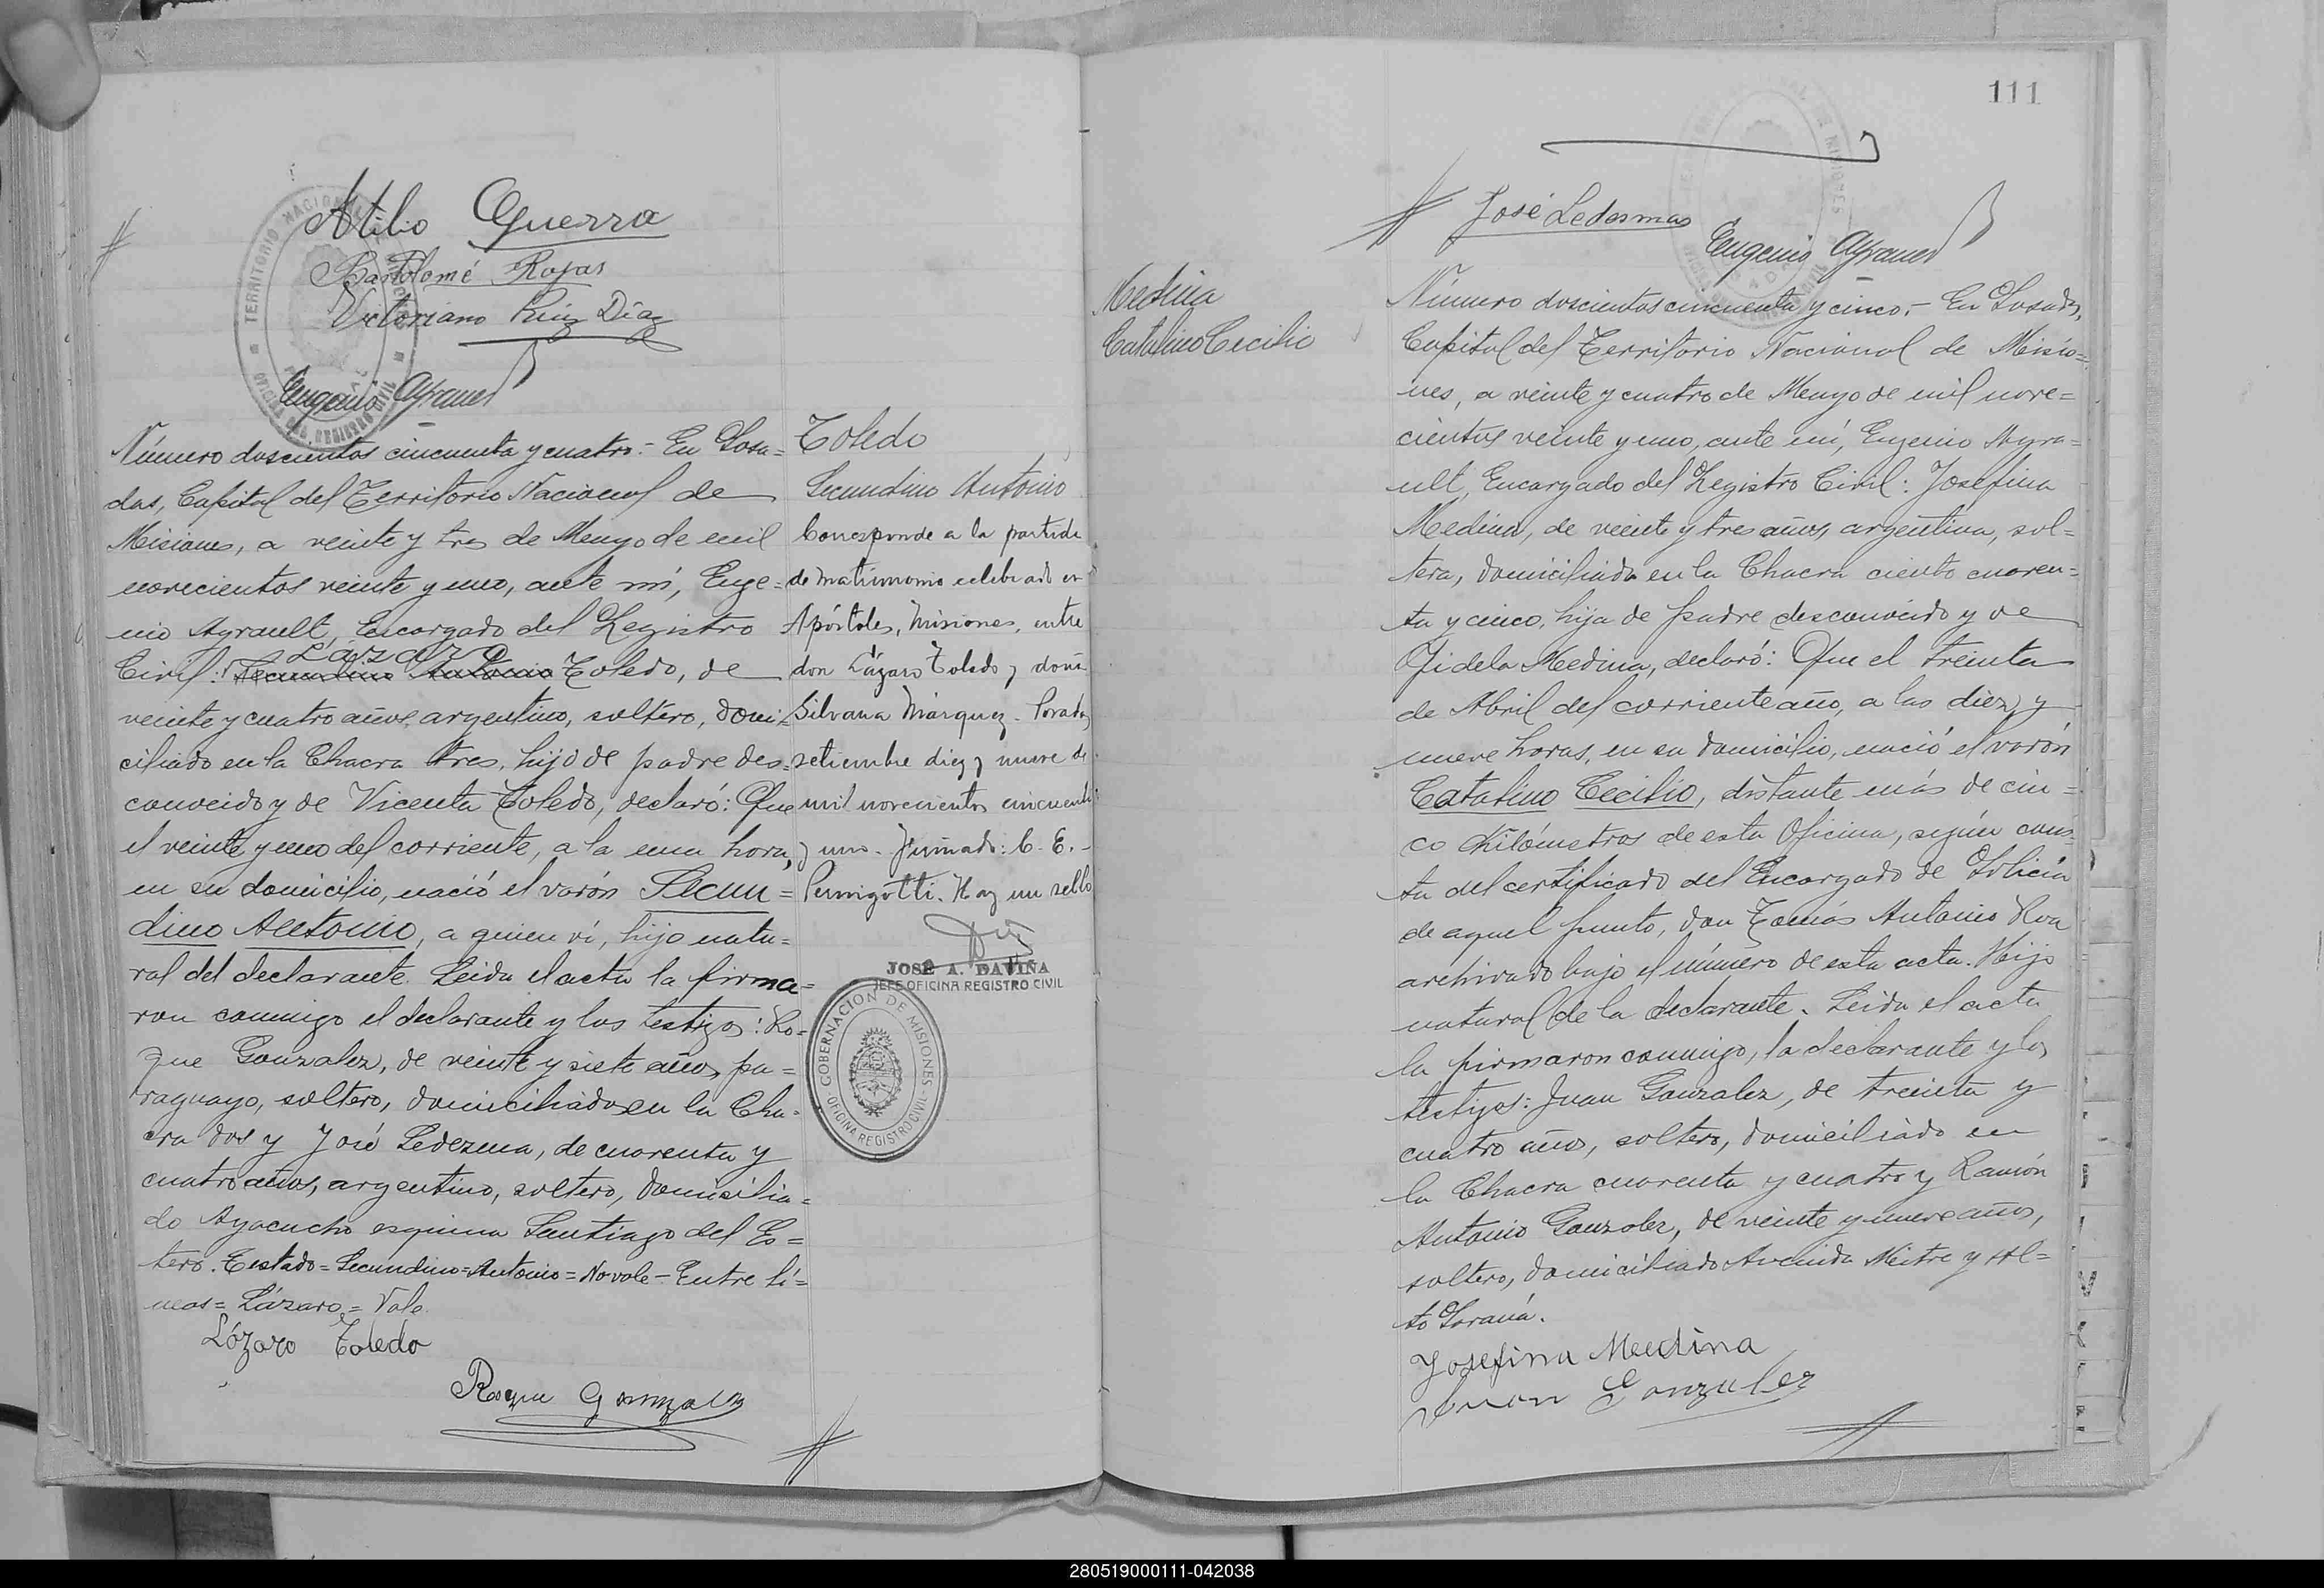 Atilio Guerra
Bartolomé Rojas
Victoriano Ruiz Díaz
TERRITORIO NACIONAL
OFICINA DEL REGISTRO CIVIL
Eugenio Ayrault
Número doscientos cincuenta y cuatro.- En Posa=
das, Capital del Territorio Nacional de
Misiones, a veinte y tres de Mayo de mil
novecientos veinte y uno, ante mí, Euge=
nio Ayrault, Encargado del Registro
Lázaro
Civil: Secundino Antonio Toledo, de
veinte y cuatro años, argentino, soltero, domi=
ciliado en la Chacra tres, hijo de padre des=
conocido y de Vicenta Toledo, declaró: Que
el veinte y uno del corriente, a la una hora,
en su domicilio, nació el varón Secun=
dino Antonio, a quien ví, hijo natu=
ral del declarante. Leida el acta la firma=
ron conmigo el declarante y los testigos: Ro=
que Gonzalez, de veinte y siete años, pa=
raguayo, soltero, domiciliado en la Cha=
cra dos y José Ledezma, de cuarenta y
cuatro años, argentino, soltero, domicilia=
do Ayacucho esquina Santiago del Es=
tero. Testado=Secundino=Antonio=No vale-Entre lí=
neas=Lázaro=Vale.
Lázaro Toledo
Roque Gonzalez
Toledo
Secundino Antonio
Corresponde a la partida
de matrimonio celebrado en
Apóstoles, Misiones, entre
don Lázaro Toledo y doña
Silvana Márquez. Posadas,
setiembre diez y nueve de
mil novecientos cincuenta
y uno. Firmado: C. E.
Pernigotti. Hay un sello
JOSE A. DAVIÑA
JEFE OFICINA REGISTRO CIVIL
GOBERNACION DE MISIONES
OFICINA REGISTRO CIVIL
111
José Ledesma
Eugenio Ayrault
Medina
Catalino Cecilio
Número doscientos cincuenta y cinco.- En Posadas,
Capital del Territorio Nacional de Misio=
nes, a veinte y cuatro de Mayo de mil nove=
cientos veinte y uno, ante mí, Eugenio Ayra=
ult, Encargado del Registro Civil: Josefina
Medina, de veinte y tres años, argentina, sol=
tera, domiciliada en la Chacra ciento cuaren=
ta y cinco, hija de padre desconocido y de
Fidela Medina, declaró: Que el treinta
de Abril del corriente año, a las diez y
nueve horas, en su domicilio, nació el varón
Catalino Cecilio, distante más de cin=
co Kilómetros de esta Oficina, según cons=
ta del certificado del Encargado de Policia
de aquel punto, don Tomás Antonio Roa
archivado bajo el número de esta acta. Hijo
natural de la declarante. Leida el acta
la firmaron conmigo, la declarante y los
testigos: Juan Gonzalez, de treinta y
cuatro años, soltero, domiciliado en
la Chacra cuarenta y cuatro y Ramón
Antonio Gonzalez, de veinte y nueve años,
soltero, domiciliado Avenida Mitre y Al=
to Paraná.
Josefina Meedina
Juan Gonzalez
280519000111-042038